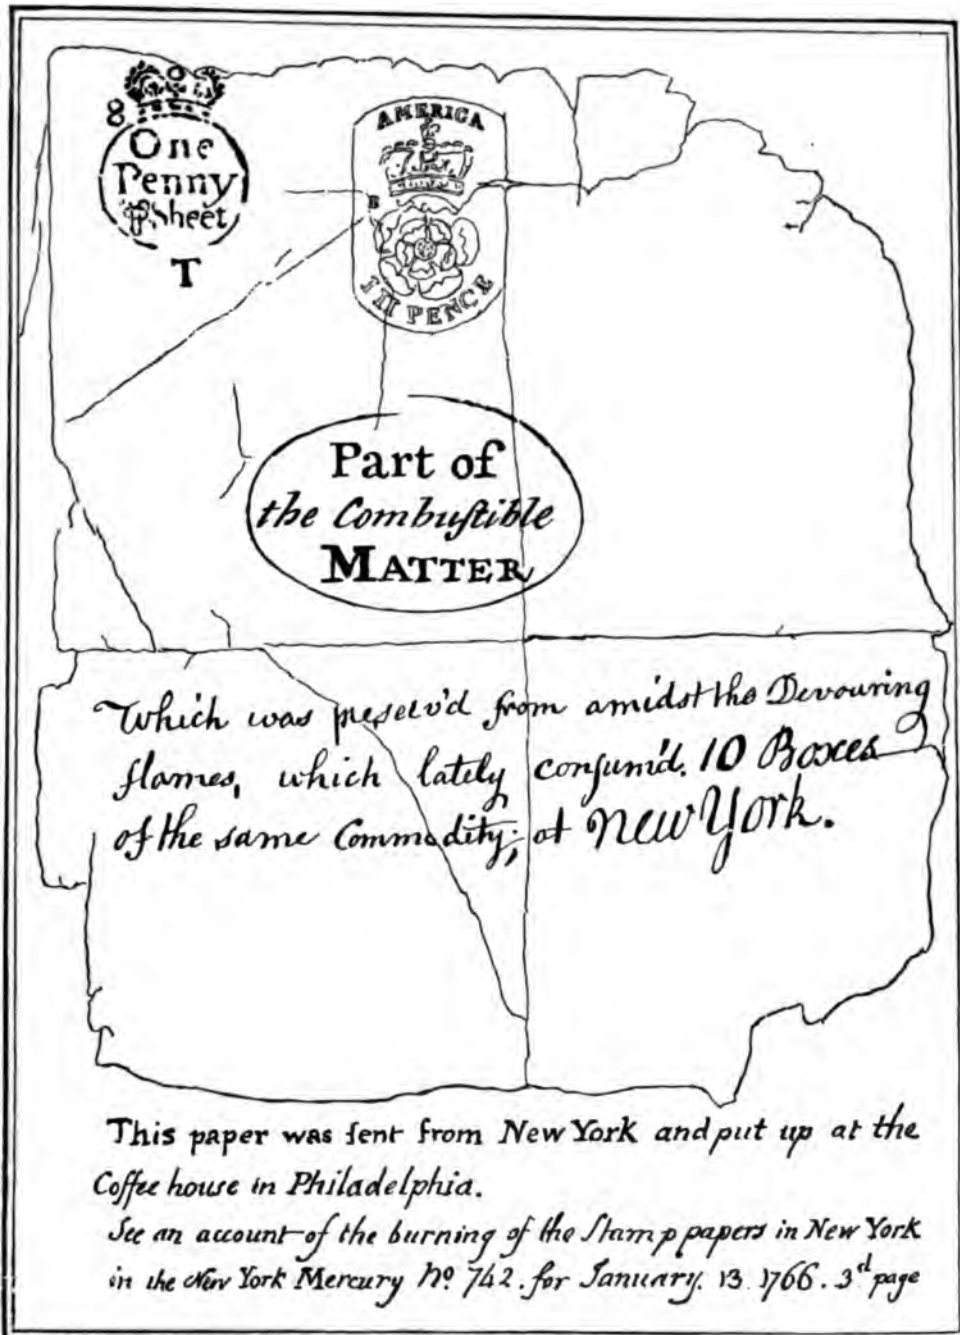 8
One
Penny
⅌ Sheet
T
AMERICA
B
III PENCE
Part of
the Combuſtible
MATTER
Which was preserv'd from amidst the Devouring
flames, which lately conſum'd. 10 Boxes
of the same Commodity; at New York.
This paper was ſent from New York and put up at the
Coffee house in Philadelphia.
See an account of the burning of the Stamp papers in New York
in the New York Mercury No. 742. for January. 13. 1766. 3d page